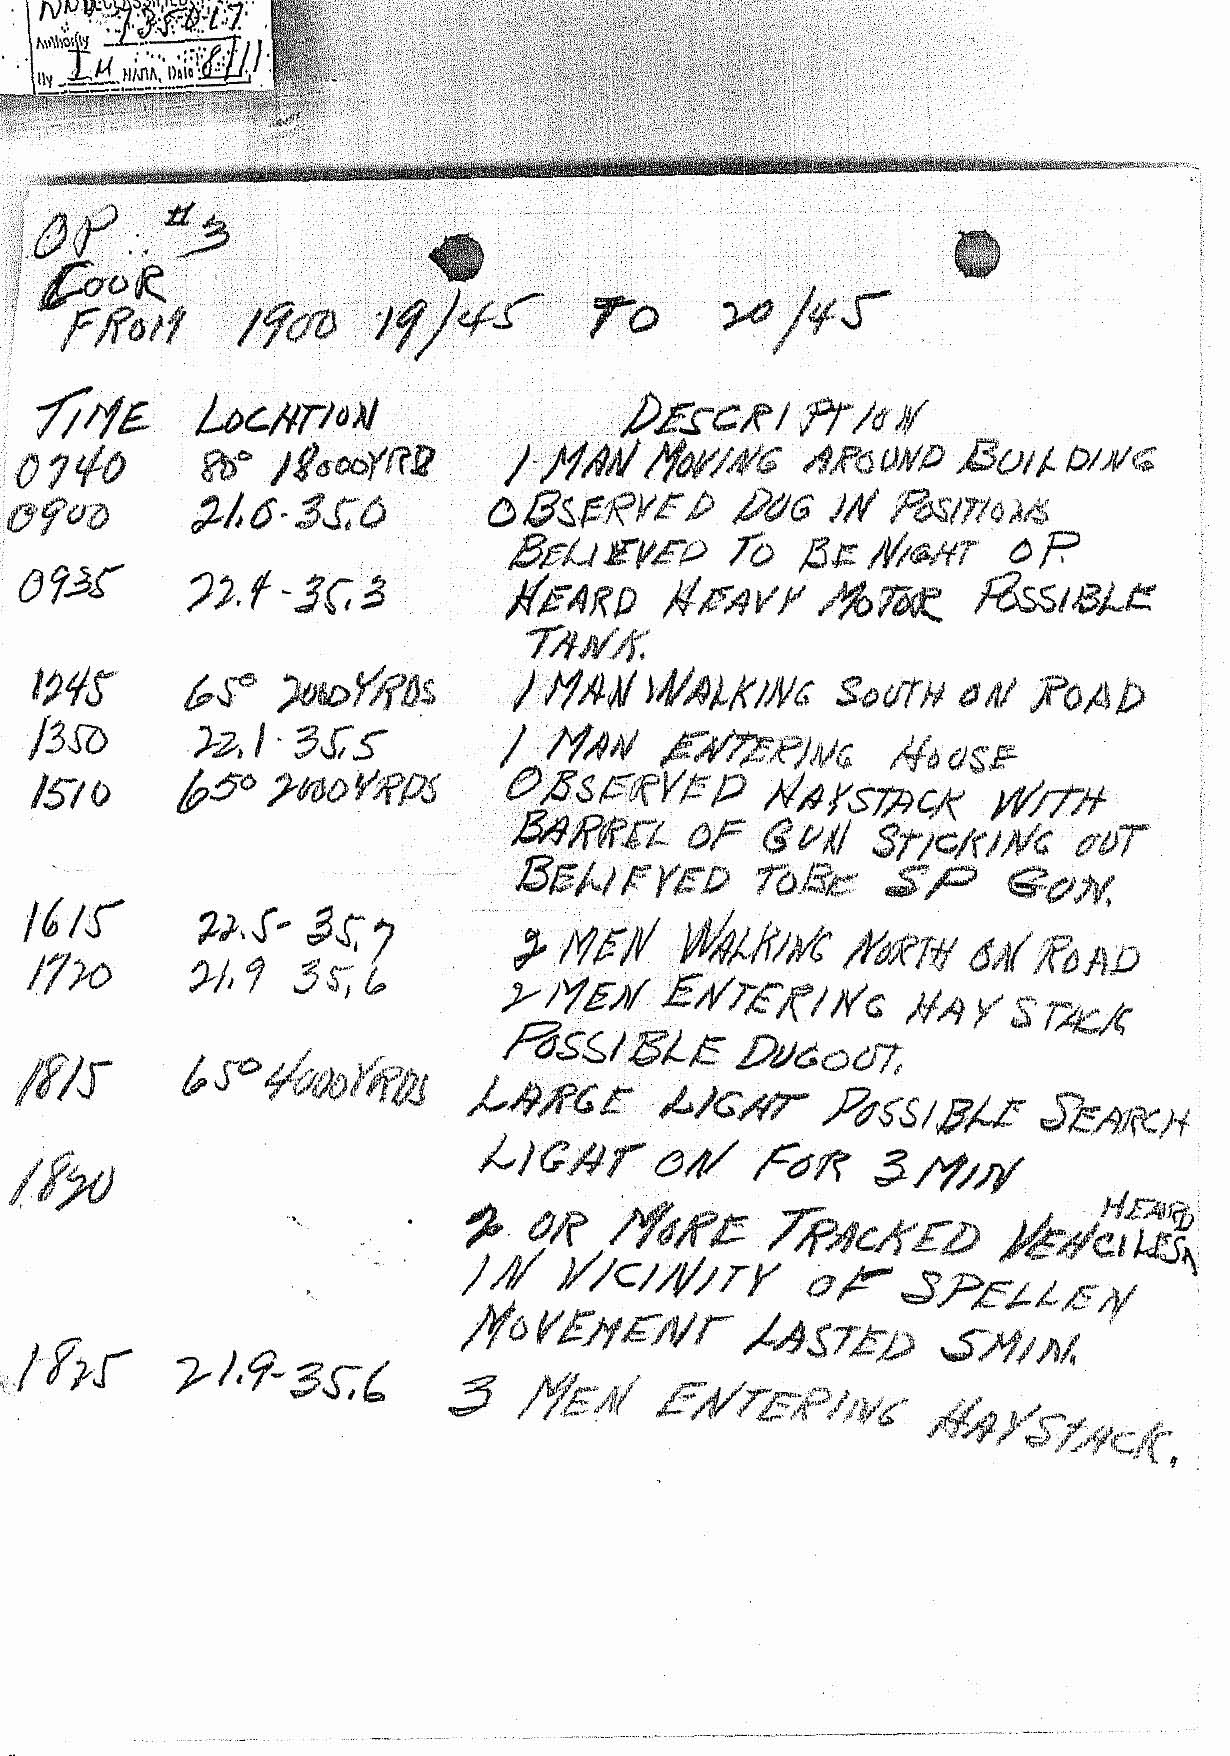 NND DECLASSIFIED
Authority 735017
By IM NARA, Date 8/11
OP #3
COOR
FROM 1900 19/45 TO 20/45
TIME LOCATION DESCRIPTION
0740 80° 18000YRD 1 MAN MOVING AROUND BUILDING
0900 21.6-35.0 OBSERVED DUG IN POSITIONS
BELIEVED TO BE NIGHT OP.
0935 22.4-35.3 HEARD HEAVY MOTOR POSSIBLE
TANK.
1245 65° 2000YRDS 1 MAN WALKING SOUTH ON ROAD
1350 22.1-35.5 1 MAN ENTERING HOUSE
1510 65° 2000YRDS OBSERVED HAYSTACK WITH
BARREL OF GUN STICKING OUT
BELIEVED TOBE SP GUN.
1615 22.5-35.7 2 MEN WALKING NORTH ON ROAD
1720 21.9 35.6 2 MEN ENTERING HAY STACK
POSSIBLE DUGOUT.
1815 65° 4000YRDS LARGE LIGHT POSSIBLE SEARCH
LIGHT ON FOR 3 MIN
1820 2 OR MORE TRACKED VEHCILES HEARD
IN VICINITY OF SPELLEN
MOVEMENT LASTED 5MIN.
1825 21.9-35.6 3 MEN ENTERING HAYSTACK.